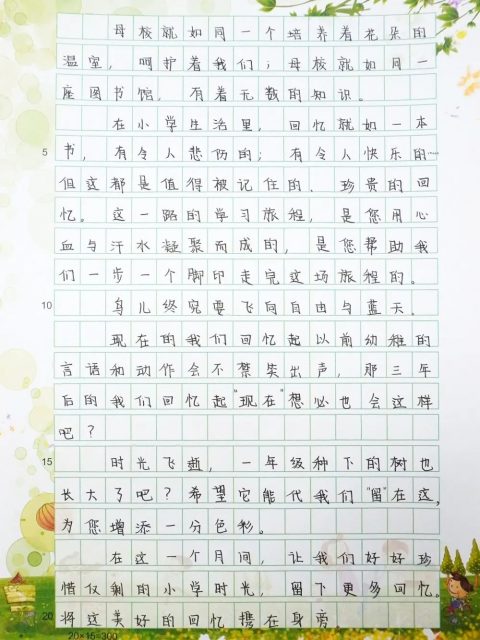 母校就如同一个培养着花朵的
温室，呵护着我们；母校就如同一
座图书馆，有着无数的知识。
在小学生活里，回忆就如一本
5 书，有令人悲伤的；有令人快乐的……
但这都是值得被记住的、珍贵的回
忆。这一路的学习旅程，是您用心
血与汗水凝聚而成的，是您帮助我
们一步一个脚印走完这场旅程的。
10 鸟儿终究要飞向自由与蓝天。
现在的我们回忆起以前幼稚的
言语和动作会不禁笑出声，那三年
后的我们回忆起“现在”想必也会这样
吧？
15 时光飞逝，一年级种下的树也
长大了吧？希望它能代我们“留”在这，
为您增添一分色彩。
在这一个月间，让我们好好珍
惜仅剩的小学时光，留下更多回忆。
20 将这美好的回忆携在身旁
20×15=300